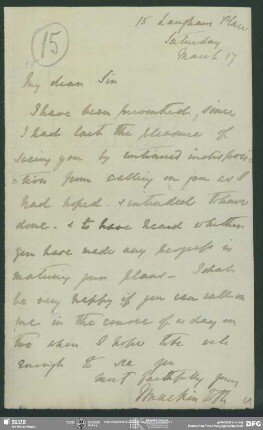 15 Langham Place
Saturday
March 17
15
15
My dear Sir
I have been prevented, since
I had last the pleasure of
seeing you by continued indisposi=
=tion from calling on you as I
had hoped & intended to have
done - & to have heard whether
you have made any progress in
maturing your plans - I shall
be very happy if you can call on
me in the course of a day or
two when I hope to be well
enough to see you
most faithfully yours
SLUB
DFG